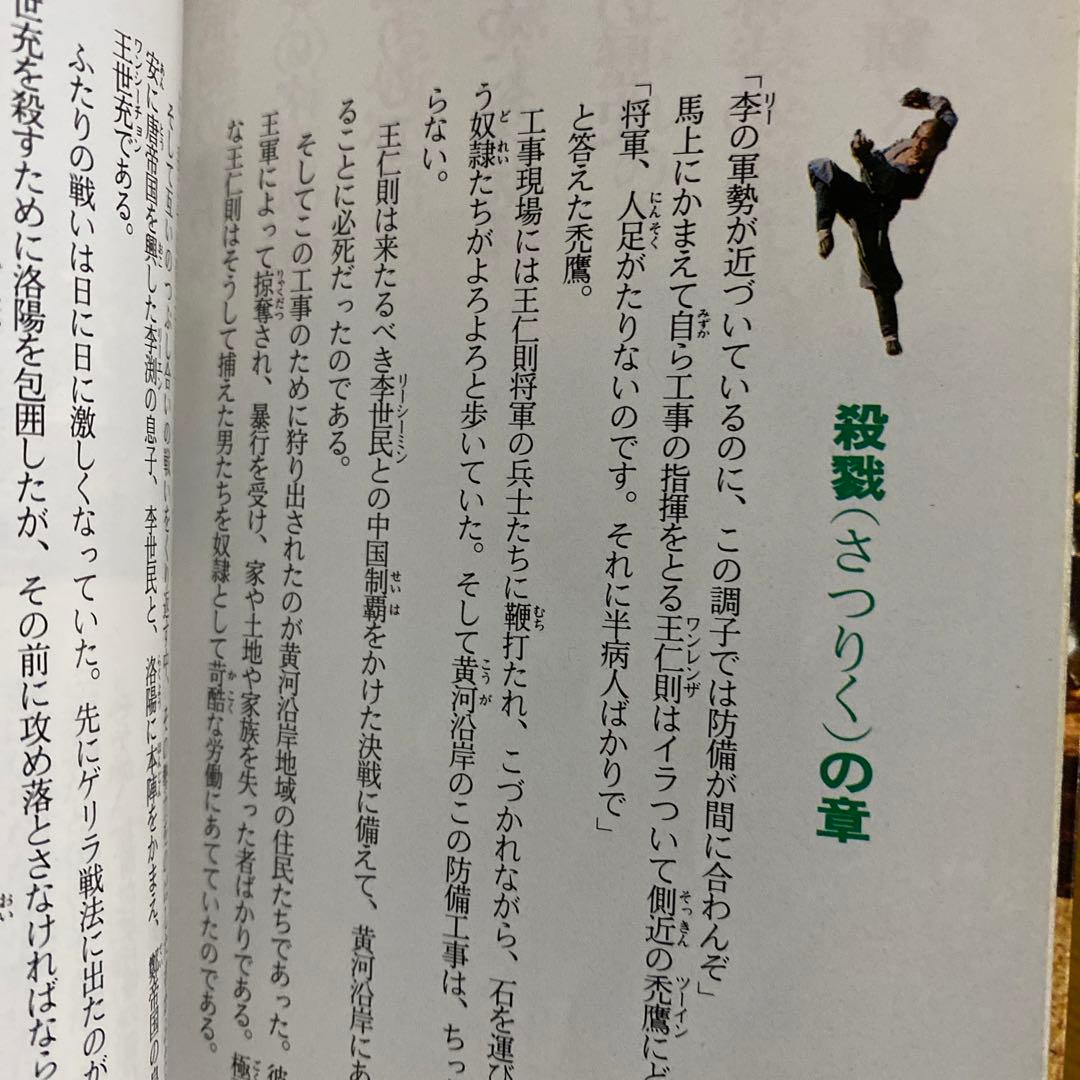 殺戮(さつりく)の章
「李の軍勢が近づいているのに、この調子では防備が間に合わんぞ」
馬上にかまえて自ら工事の指揮をとる王仁則はイラついて側近の禿鷹にど
「将軍、人足がたりないのです。それに半病人ばかりで」
と答えた禿鷹。
工事現場には王仁則将軍の兵士たちに鞭打たれ、こづかれながら、石を運び
う奴隷たちがよろよろと歩いていた。そして黄河沿岸のこの防備工事は、ちっ
らない。
王仁則は来たるべき李世民との中国制覇をかけた決戦に備えて、黄河沿岸にあ
ることに必死だったのである。
そしてこの工事のために狩り出されたのが黄河沿岸地域の住民たちであった。彼
王軍によって掠奪され、暴行を受け、家や土地や家族を失った者ばかりである。極
な王仁則はそうして捕えた男たちを奴隷として苛酷な労働にあてていたのである。
そして互いのつぶし合いの戦いをくり返す中、
安に唐帝国を興した李渕の息子、李世民と、洛陽に本陣をかまえ、鄭帝国の
王世充である。
ふたりの戦いは日に日に激しくなっていた。先にゲリラ戦法に出たのが
世充を殺すために洛陽を包囲したが、その前に攻め落とさなければなら